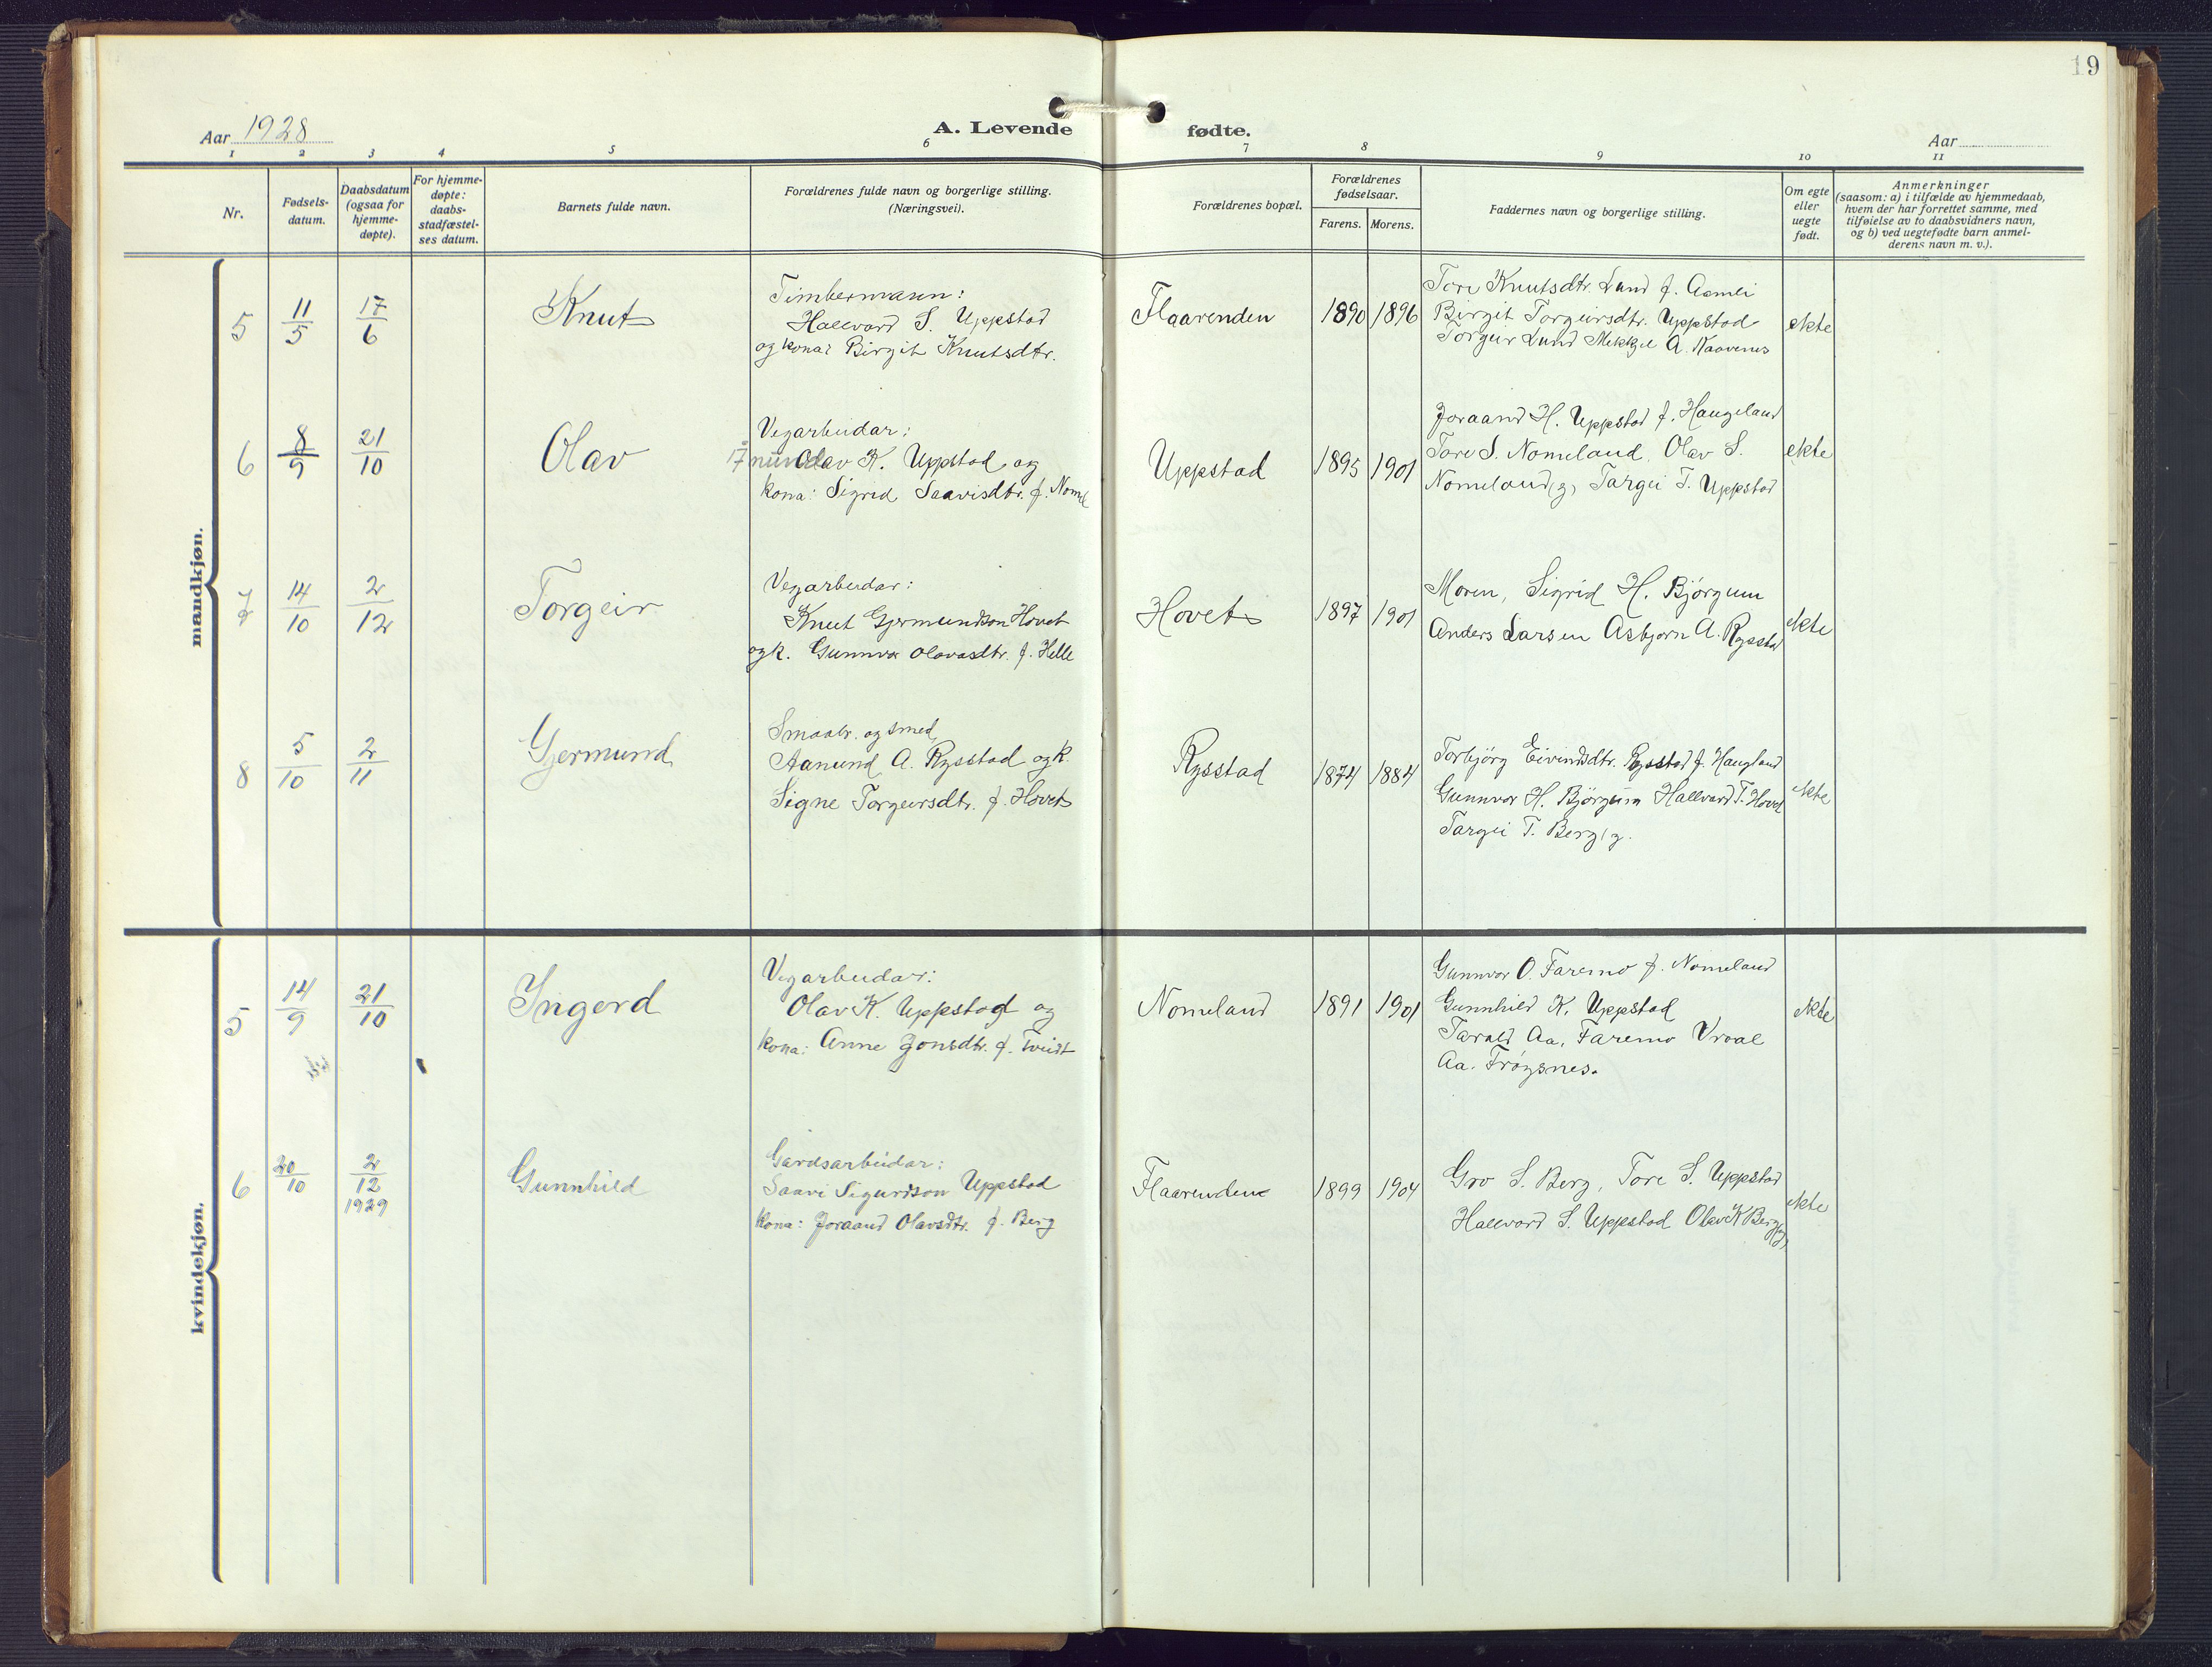 19
Aar 1928
A. Levende fødte.
Aar
1 2 3 4 5 6 7 8 9 10 11
Nr.
Fødsels-
datum.
Daabsdatum
(ogsaa for
hjemme-
døpte).
For hjemme-
døpte:
daabs-
stadfæstel-
ses datum.
Barnets fulde navn.
Forældrenes fulde navn og borgerlige stilling.
(Næringsvei).
Forældrenes bopæl.
Forældrenes
fødselsaar.
Farens. Morens.
Faddernes navn og borgerlige stilling.
Om egte
eller
uegte
født.
Anmerkninger
(saasom: a) i tilfælde av hjemmedaab,
hvem der har forrettet samme, med
tilføielse av to daabsvidners navn,
og b) ved uegtefødte barn anmel-
derens navn m. v.).
mandkjøn.
5 11/5 17/6 Knut
Timbermann:
Hallvard S. Uppstad
og kona: Birgit Knutsdtr.
Flaarenden 1890 1896
Tore Knutsdtr. Lund f. Aamli
Birgit Torgeirsdtr. Uppstad
Torgeir Lund Mikkjel A. Kaavenes
ekte
6 8/9 21/10 Olav
Vegarbeidar:
Olav K. Uppstad og
kona: Sigrid Saavisdtr. f. Nomel
Uppstad 1895 1901
Joraand H. Uppstad f. Haugeland
Tore S. Nomeland, Olav S.
Nomeland, g, Targei T. Uppstad
ekte
7 14/10 2/12 Torgeir
Vegarbeidar:
Knut Gjermundson Hovet
og k. Gunnvor Olavasdtr. f. Helle
Hovet 1897 1901
Moren, Sigrid H. Bjørgum
Anders Larsen Asbjørn A. Rysstad
ekte
8 5/10 2/11 Gjermund
Smaabr. og smed
Aanund A. Rysstad og k.
Signe Torgeirsdtr. f. Hovet
Rysstad 1874 1884
Torbjørg Eivindsdtr. Rysstad f. Haugland
Gunnvor H. Bjørgum Hallvard T. Hovet
Targei T. Berg, g.
ekte
kvindekjøn.
5 14/9 21/10 Ingerd
Vegarbeidar:
Olav K. Uppstad og
kona: Anne Jonsdtr. f. Tveidt
Nomeland 1891 1901
Gunnvor O. Faremo f. Nomeland
Gunnhild K. Uppstad
Tarald Aa. Faremo Vroal
Aa. Frøysnes.
ekte
6 20/10 2/12 1929 Gunnhild
Gardsarbeidar:
Saavi Sigurdson Uppstad
kona: Joraand Olavsdtr. f. Berg
Flaarenden 1899 1904
Gro S. Berg, Tore S. Uppstad
Hallvard S. Uppstad Olav K Berg (g)
ekte